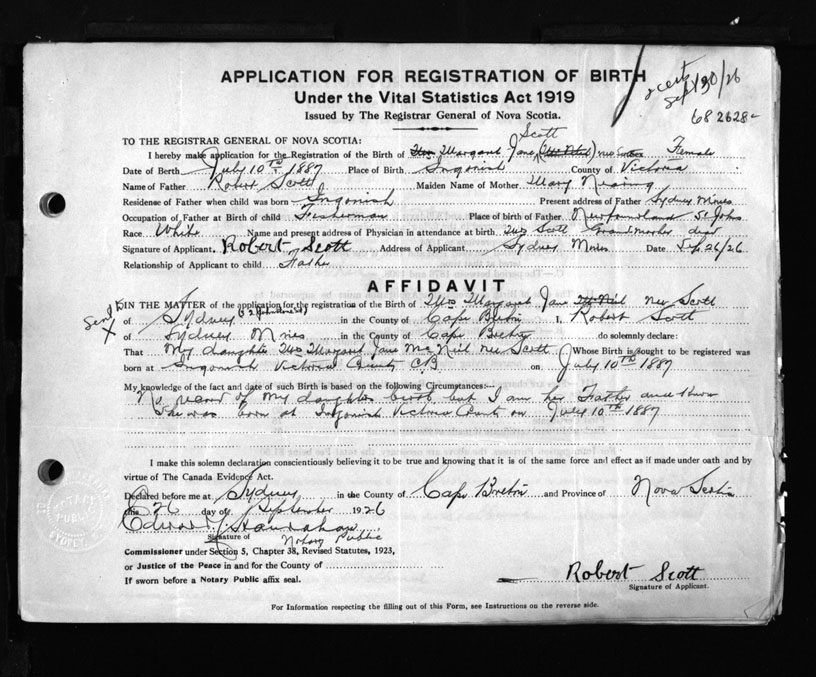 APPLICATION FOR REGISTRATION OF BIRTH
Under the Vital Statistics Act 1919
Issued by The Registrar General of Nova Scotia.
Sept 30/26
682628
Scott
TO THE REGISTRAR GENERAL OF NOVA SCOTIA:
I hereby make application for the Registration of the Birth of Mrs Margaret Jane (McNeil) nee Sex Female
Date of Birth July 10th 1887 Place of Birth Ingonish County of Victoria
Name of Father Robert Scott Maiden Name of Mother Mary
Residense of Father when child was born Ingonish Present address of Father Sydney Mines
Occupation of Father at Birth of child Fisherman Place of birth of Father Newfoundland St Johns
Race White Name and present address of Physician in attendance at birth Mrs Scott Grandmother dead
Signature of Applicant Robert Scott Address of Applicant Sydney Mines Date Sep 26/26
Relationship of Applicant to child Father
AFFIDAVIT
IN THE MATTER of the application for the registration of the Birth of Mrs Margaret Jane McNeil nee Scott
Send
X
of Sydney in the County of Cape Breton I, Robert Scott
of Sydney Mines in the County of Cape Breton do solemnly declare:
That My daughter Mrs Margaret Jane McNeil nee Scott Whose Birth is sought to be registered was
born at Ingonish Victoria County C.B. on July 10th 1887
My knowledge of the fact and date of such Birth is based on the following Circumstances:—
No record of my daughters birth but I am her Father and know
she was born at Ingonish Victoria County on July 10th 1887
I make this solemn declaration conscientiously believing it to be true and knowing that it is of the same force and effect as if made under oath and by
virtue of The Canada Evidence Act.
Declared before me at Sydney in the County of Cape Breton and Province of Nova Scotia
this 26 day of September 1926
Signature of
Notary Public
Commissioner under Section 5, Chapter 38, Revised Statutes, 1923,
or Justice of the Peace in and for the County of
If sworn before a Notary Public affix seal.
Robert Scott
Signature of Applicant.
For Information respecting the filling out of this Form, see Instructions on the reverse side.